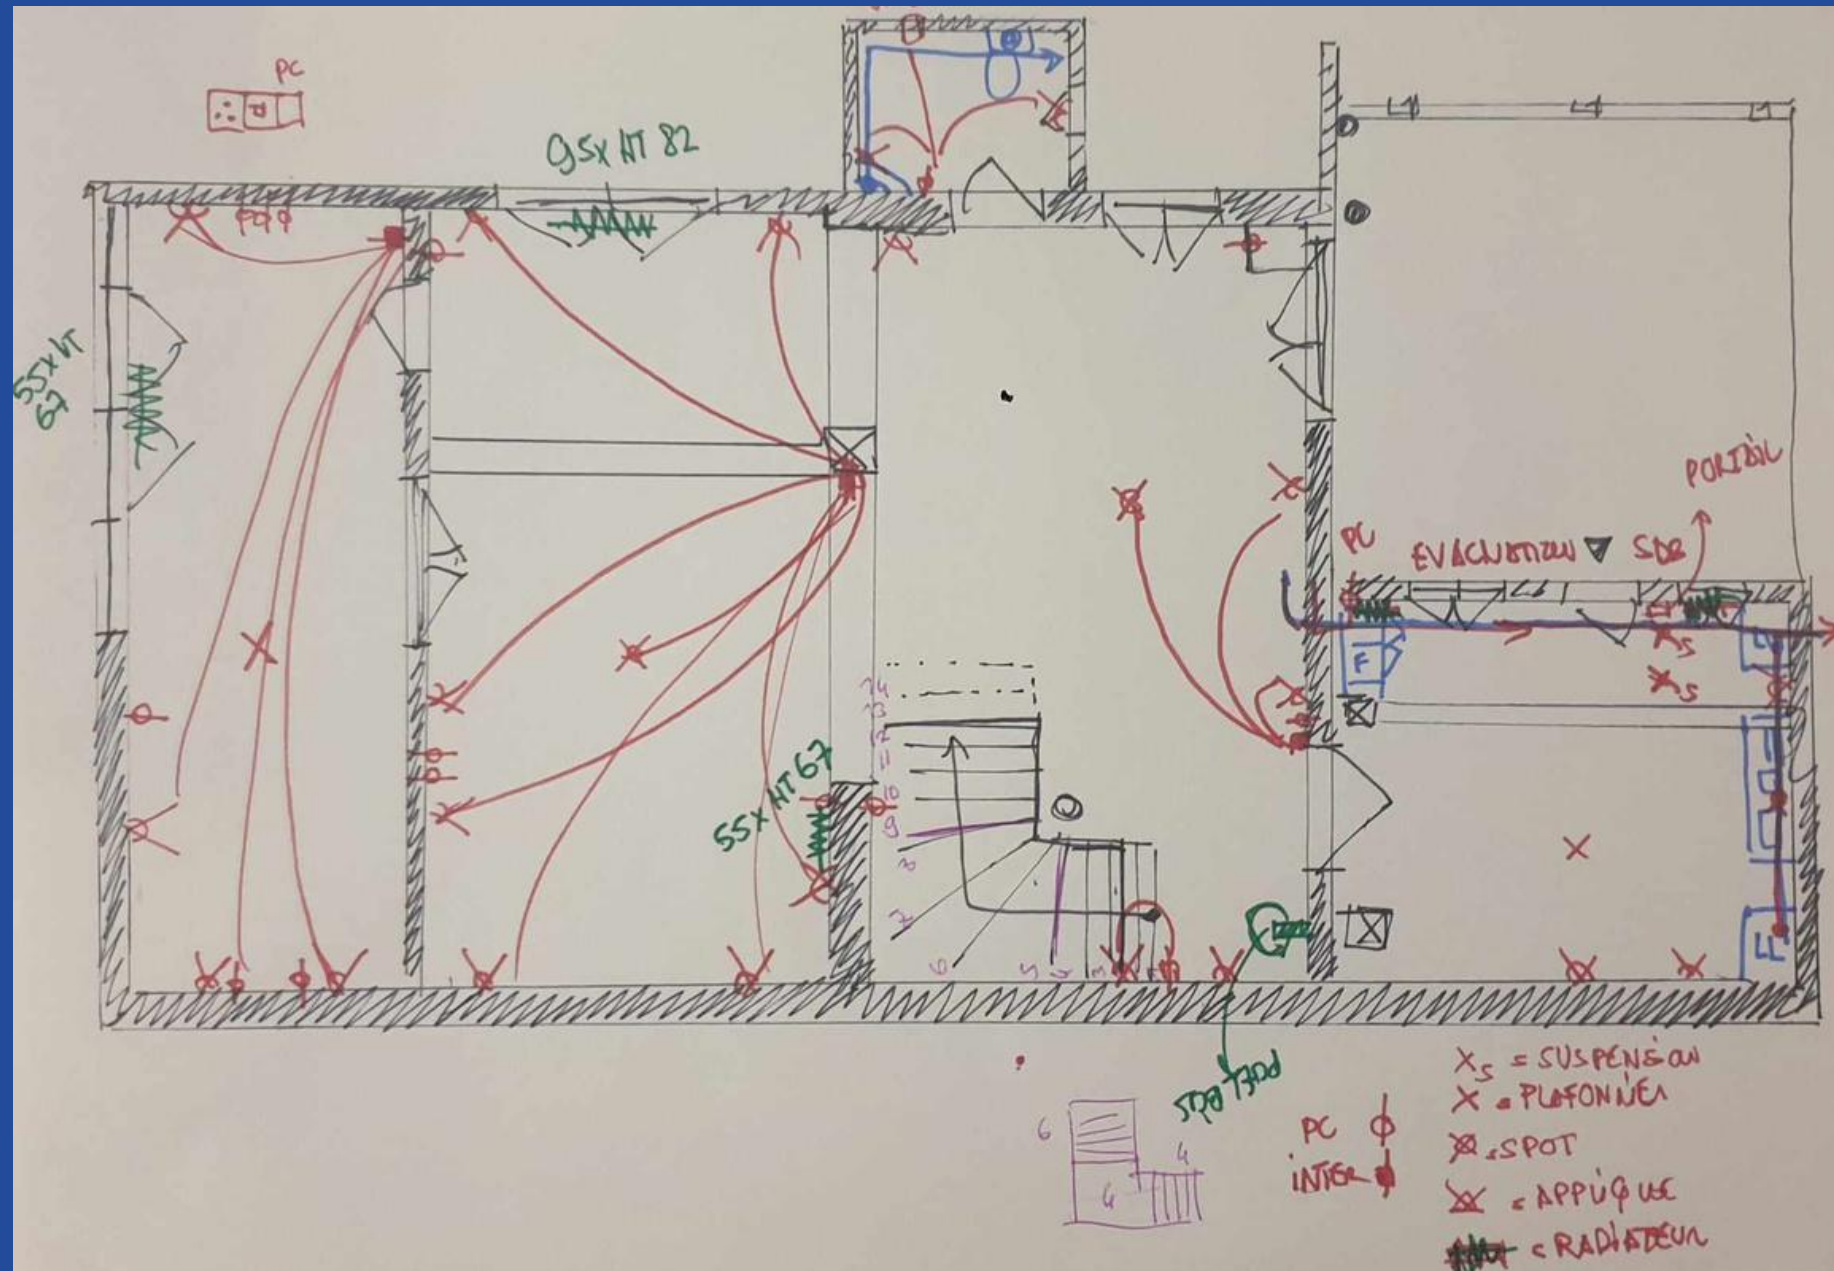 PC
95x HT 82
55x HT
67
PORTAIL
PC
EVACUATION ▼ SDB
F
S
S
14
13
12
11
10
9
8
7
6
5
4
3
55x HT 67
F
6
4
4
PC
INTER
XS = SUSPENSION
X = PLAFONNIER
= SPOT
= APPLIQUE
= RADIATEUR